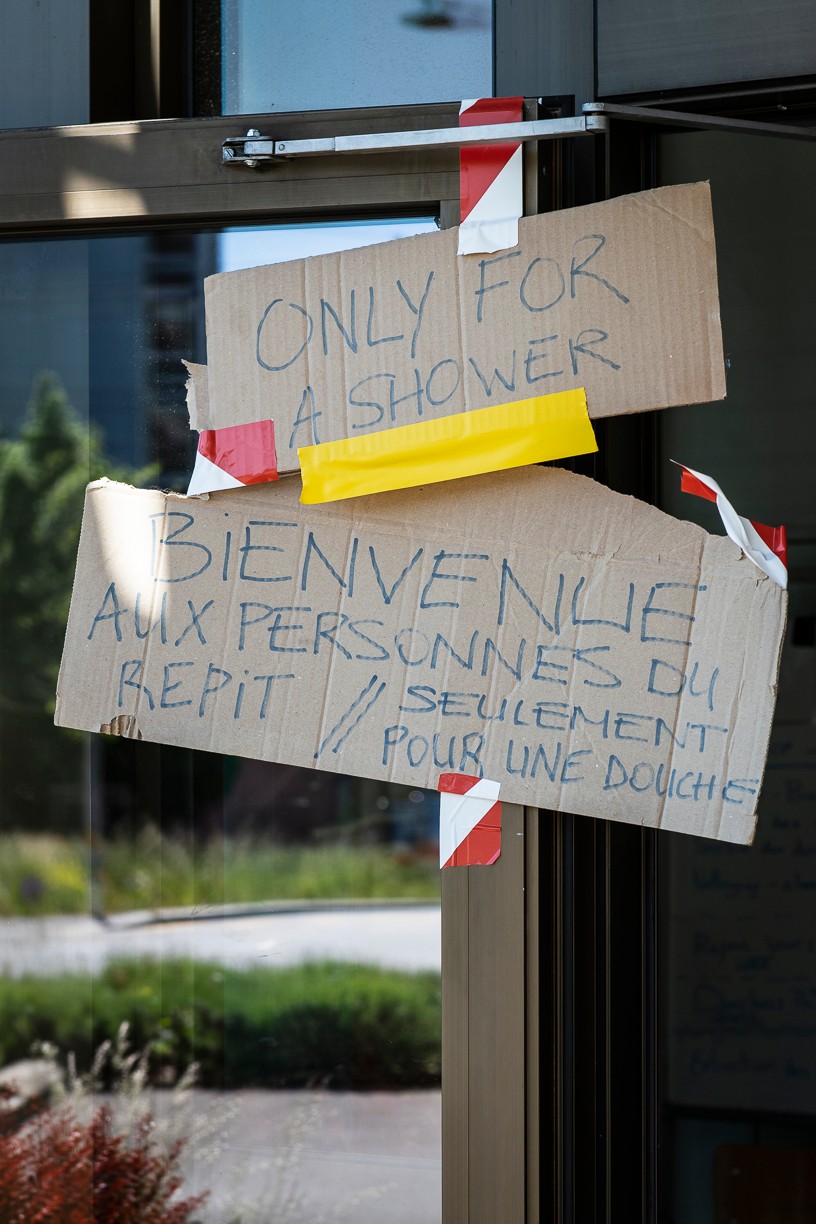 ONLY FOR
A SHOWER
BiENVENUE
AUX PERSONNES DU
REPiT // SEULEMENT
POUR UNE DOUCHE